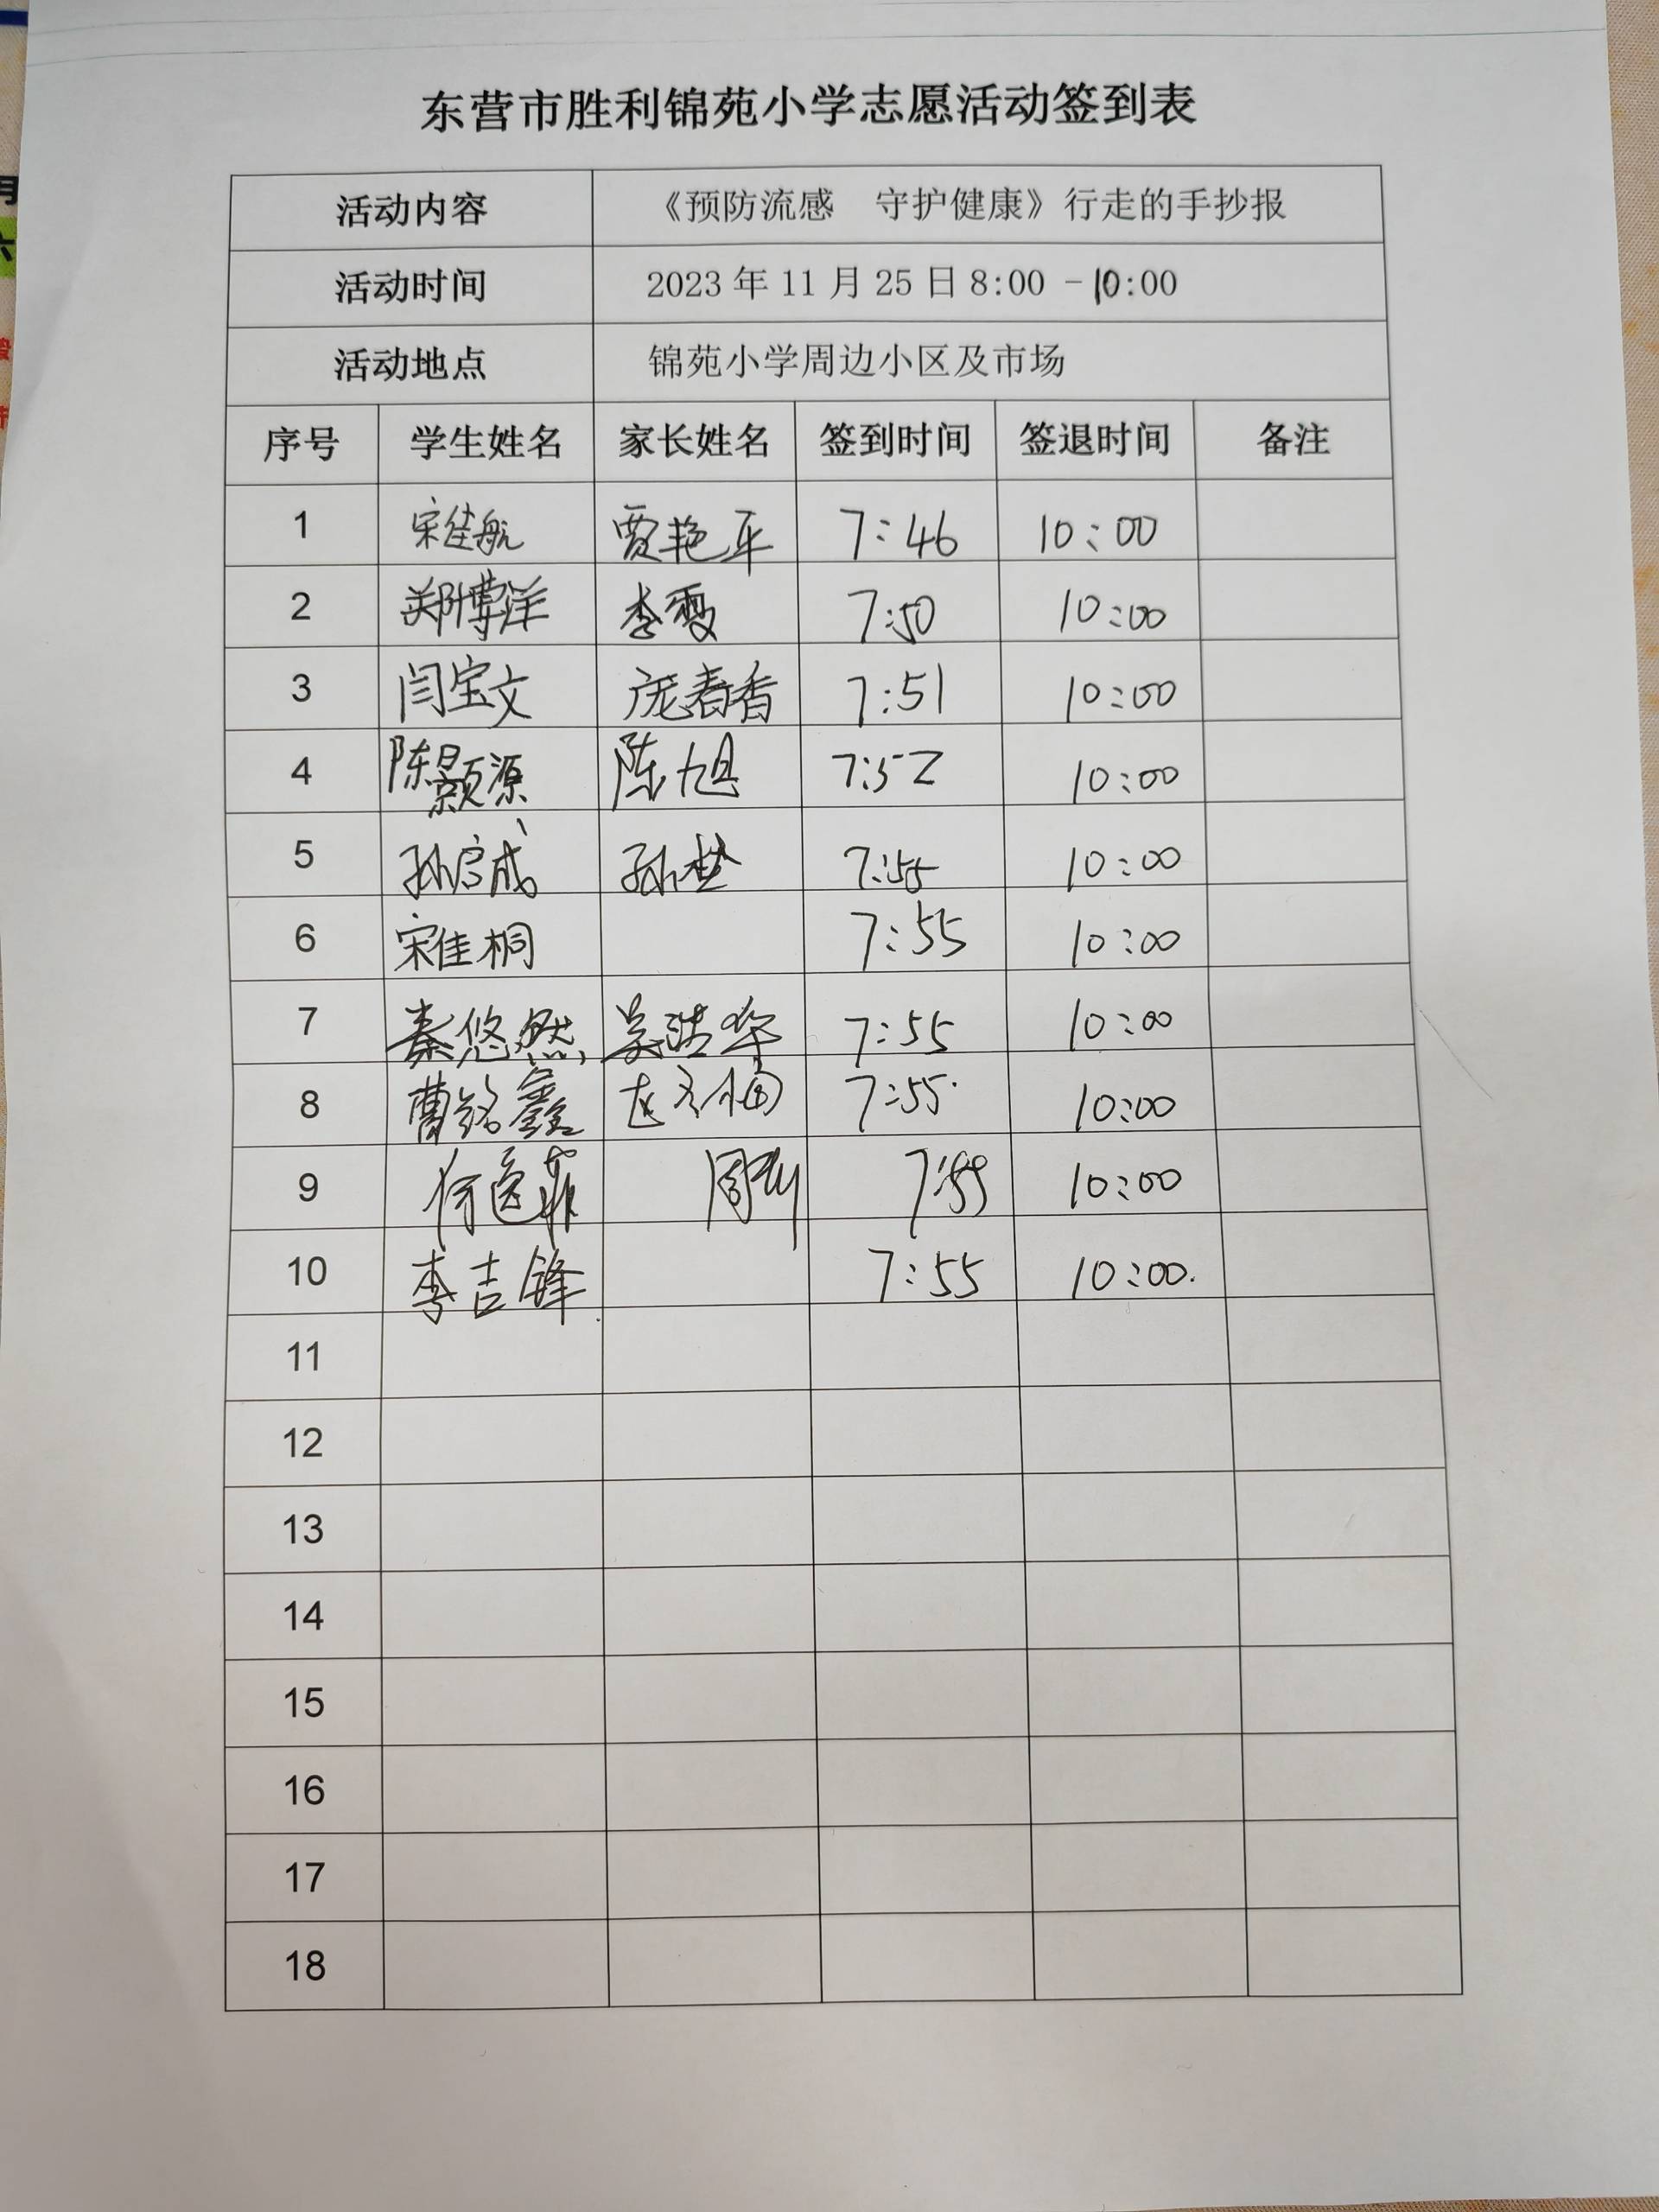 东营市胜利锦苑小学志愿活动签到表
活动内容 《预防流感 守护健康》行走的手抄报
活动时间 2023年11月25日8:00-10:00
活动地点 锦苑小学周边小区及市场
序号 学生姓名 家长姓名 签到时间 签退时间 备注
1 宋佳航 贾艳平 7:46 10:00
2 郑博洋 李雯 7:50 10:00
3 闫宝文 庞春香 7:51 10:00
4 陈颢源 陈旭 7:52 10:00
5 孙启成 7:55 10:00
6 宋佳桐 7:55 10:00
7 秦悠然 吴洁华 7:55 10:00
8 曹铭鑫 7:55 10:00
9 7:55 10:00
10 李吉锋 7:55 10:00.
11
12
13
14
15
16
17
18